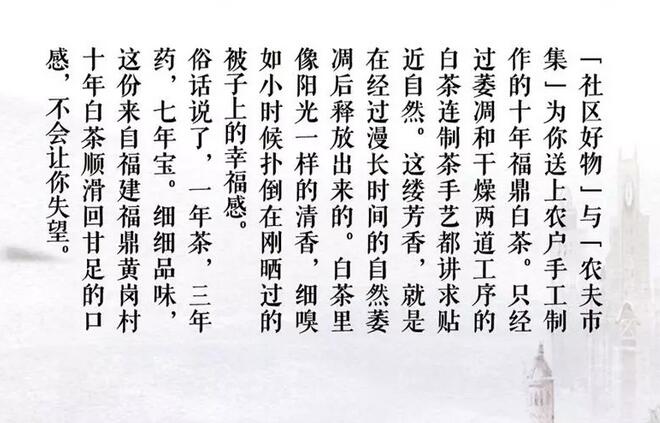 「社区好物」与「农夫市
集」为你送上农户手工制
作的十年福鼎白茶。只经
过萎凋和干燥两道工序的
白茶连制茶手艺都讲求贴
近自然。这缕芳香，就是
在经过漫长时间的自然萎
凋后释放出来的。白茶里
像阳光一样的清香，细嗅
如小时候扑倒在刚晒过的
被子上的幸福感。
俗话说了，一年茶，三年
药，七年宝。细细品味，
这份来自福建福鼎黄岗村
十年白茶顺滑回甘足的口
感，不会让你失望。